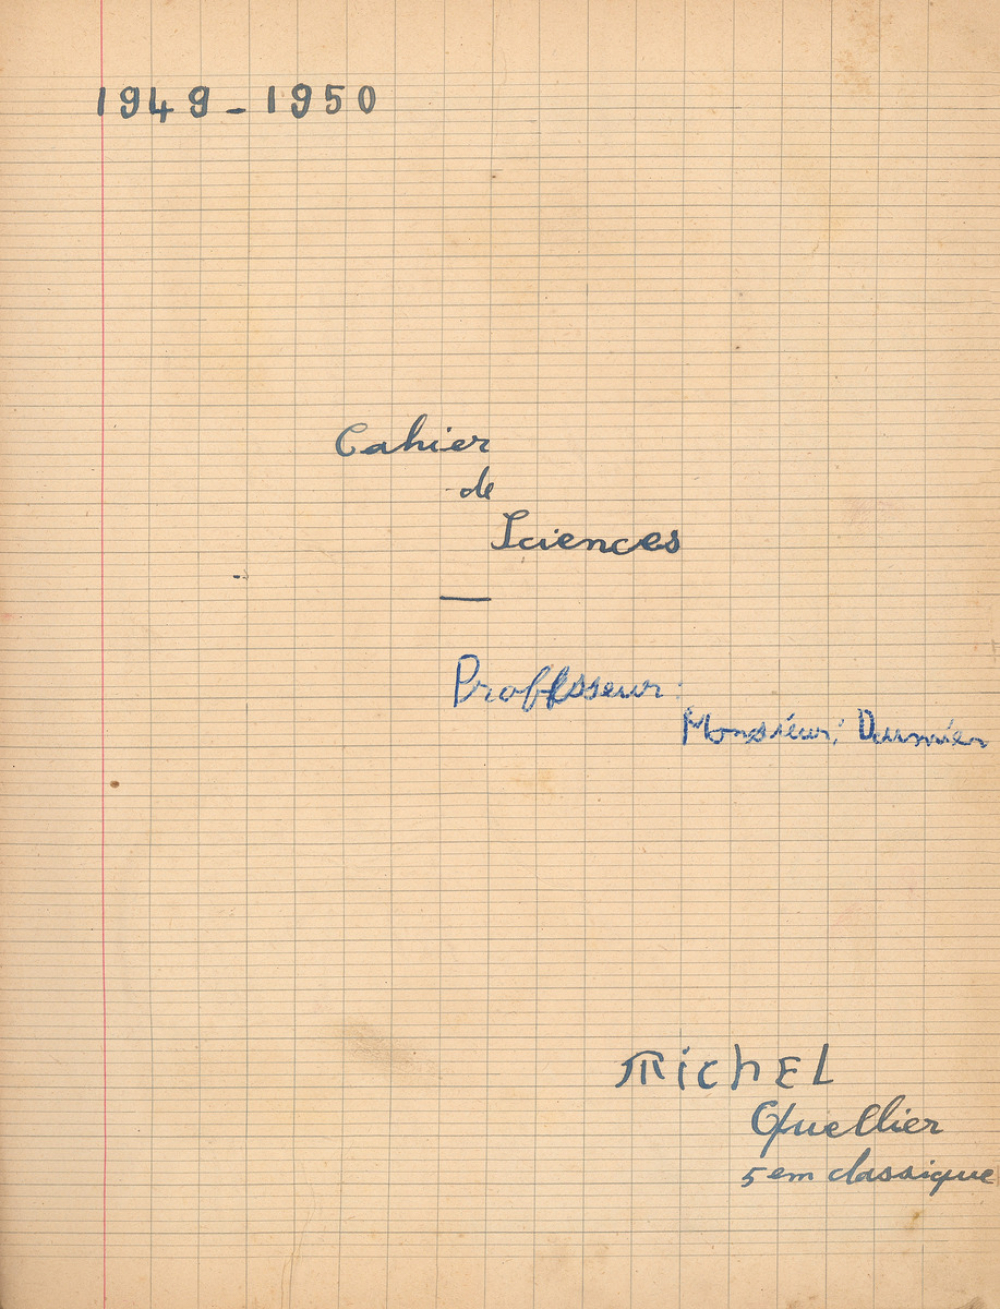 1949 - 1950
Cahier
de
Sciences
—
Professeur:
Monsieur:
MichEL
Quellier
5em classique